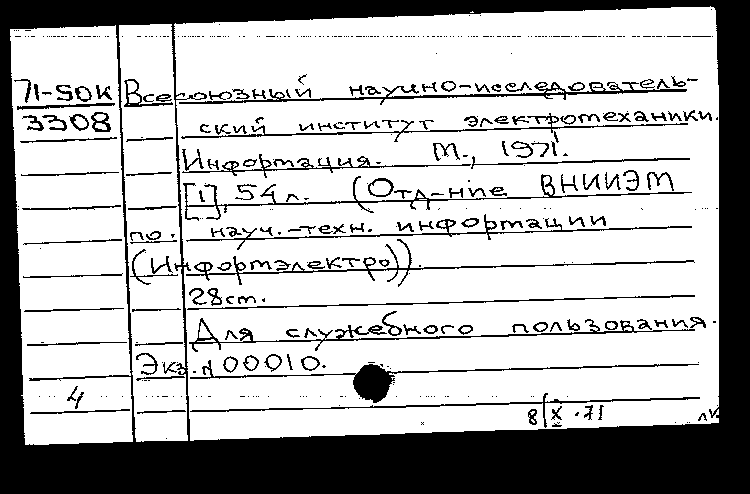 71-SOK Всесоюзный научно-исследователь-
3308 ский институт электротеханики.
Информация. М., 1971.
[1], 54 л. (Отд-ние ВНИИЭМ
по науч.-техн. информации
(Информэлектро)).
28 cm.
Для служебного пользования.
Экз. № 00010.
4
8/X.71